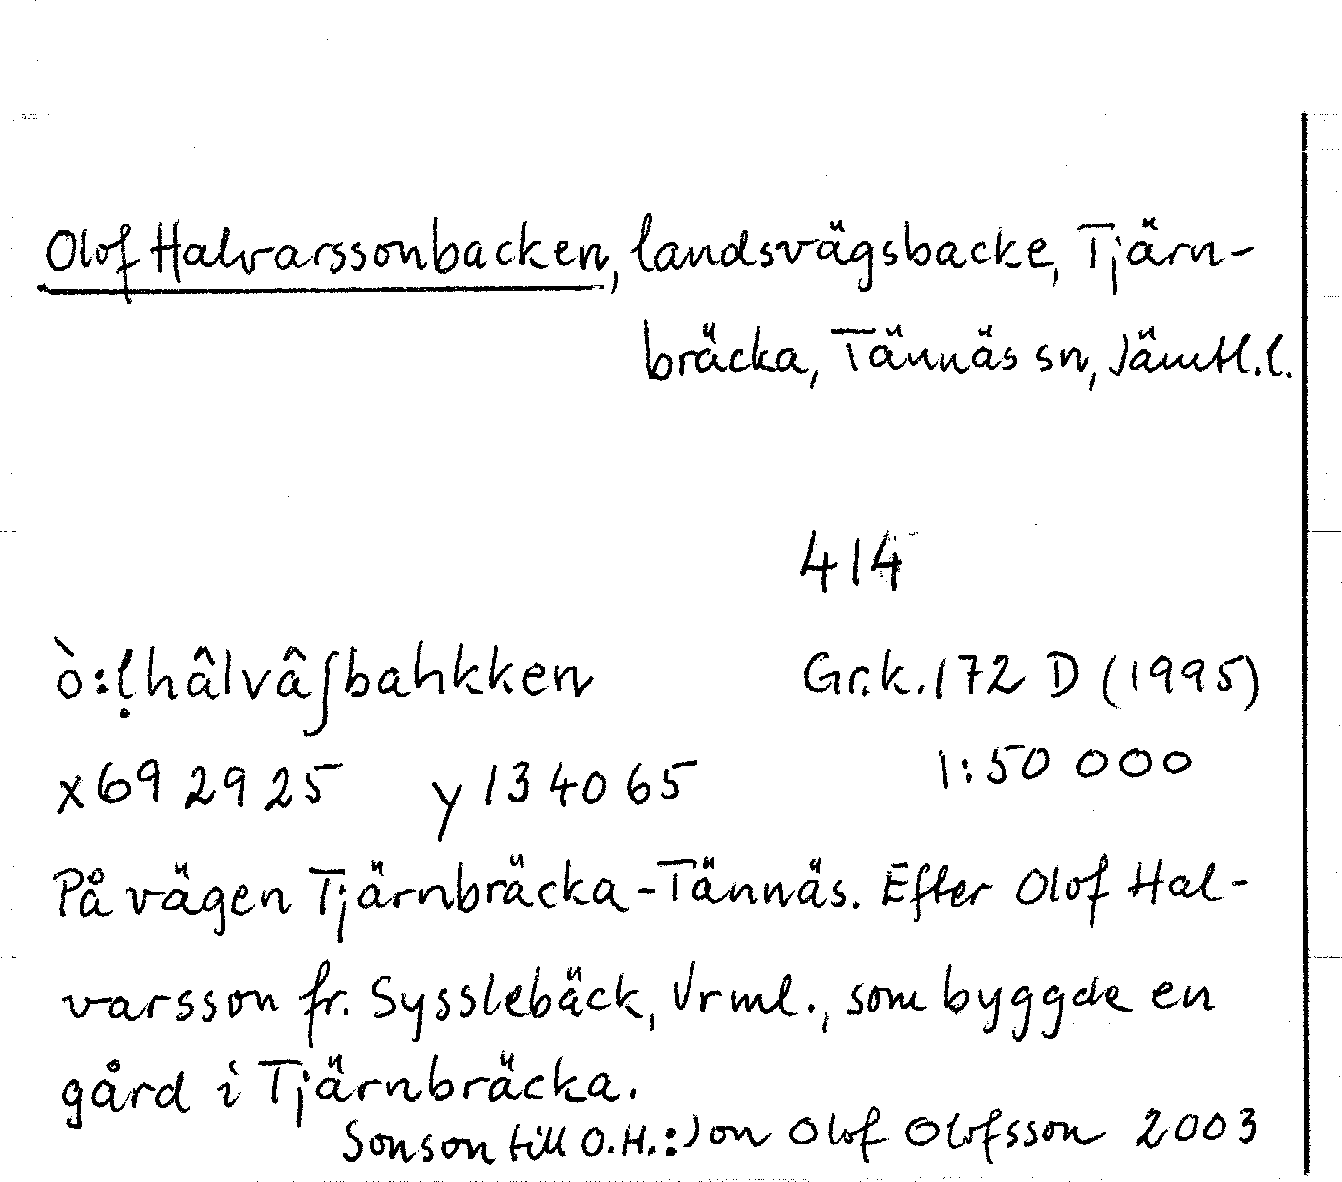 Olof Halvarssonbacken, landsvägsbacke, Tjärn-
bräcka, Tännäs sn, Jämtl.l.
414
ò:ḷhâlvâʃbahkken Gr.k. 172 D (1995)
x692925 y134065 1:50 000
På vägen Tjärnbräcka-Tännäs. Efter Olof Hal-
varsson fr. Sysslebäck, Vrml., som byggde en
gård i Tjärnbräcka.
Sonson till O.H.: Jon Olof Olofsson 2003